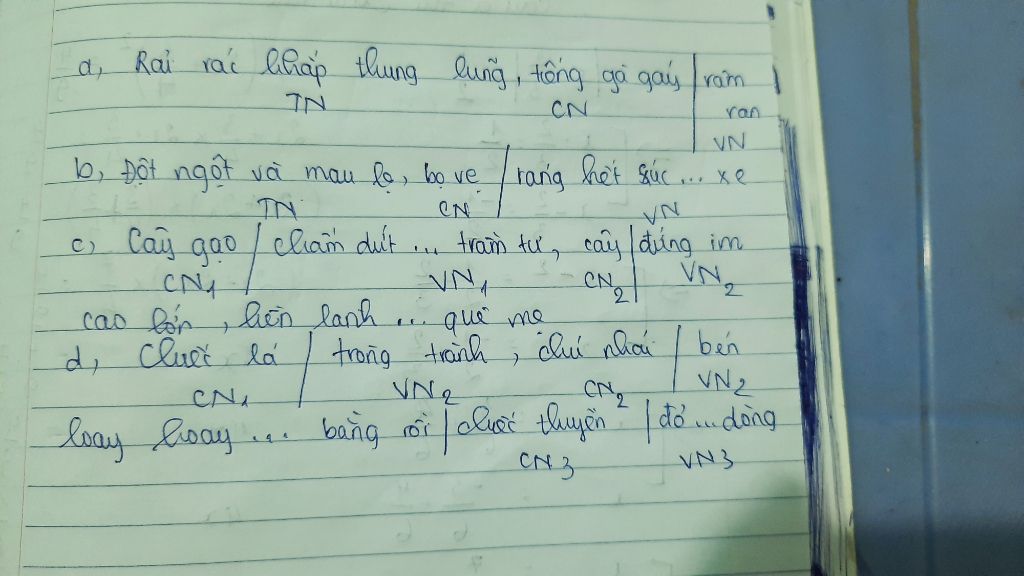 a, Rải rác khắp thung lũng, tiếng gà gáy | râm
TN CN ran
VN
b, Đột ngột và mau lẹ, bọ ve / rang hết sức... xe
TN CN VN
c, Cây gạo / chấm dứt ... trầm tư, cây | đứng im
CN1 VN1 CN2 VN2
cao lớn, hiền lành ... quê mẹ
d, Chiếc lá / tròng trành, chú nhái / bén
CN1 VN2 CN2 VN2
loay hoay ... bằng rồi | chiếc thuyền | đỏ ... dòng
CN3 VN3